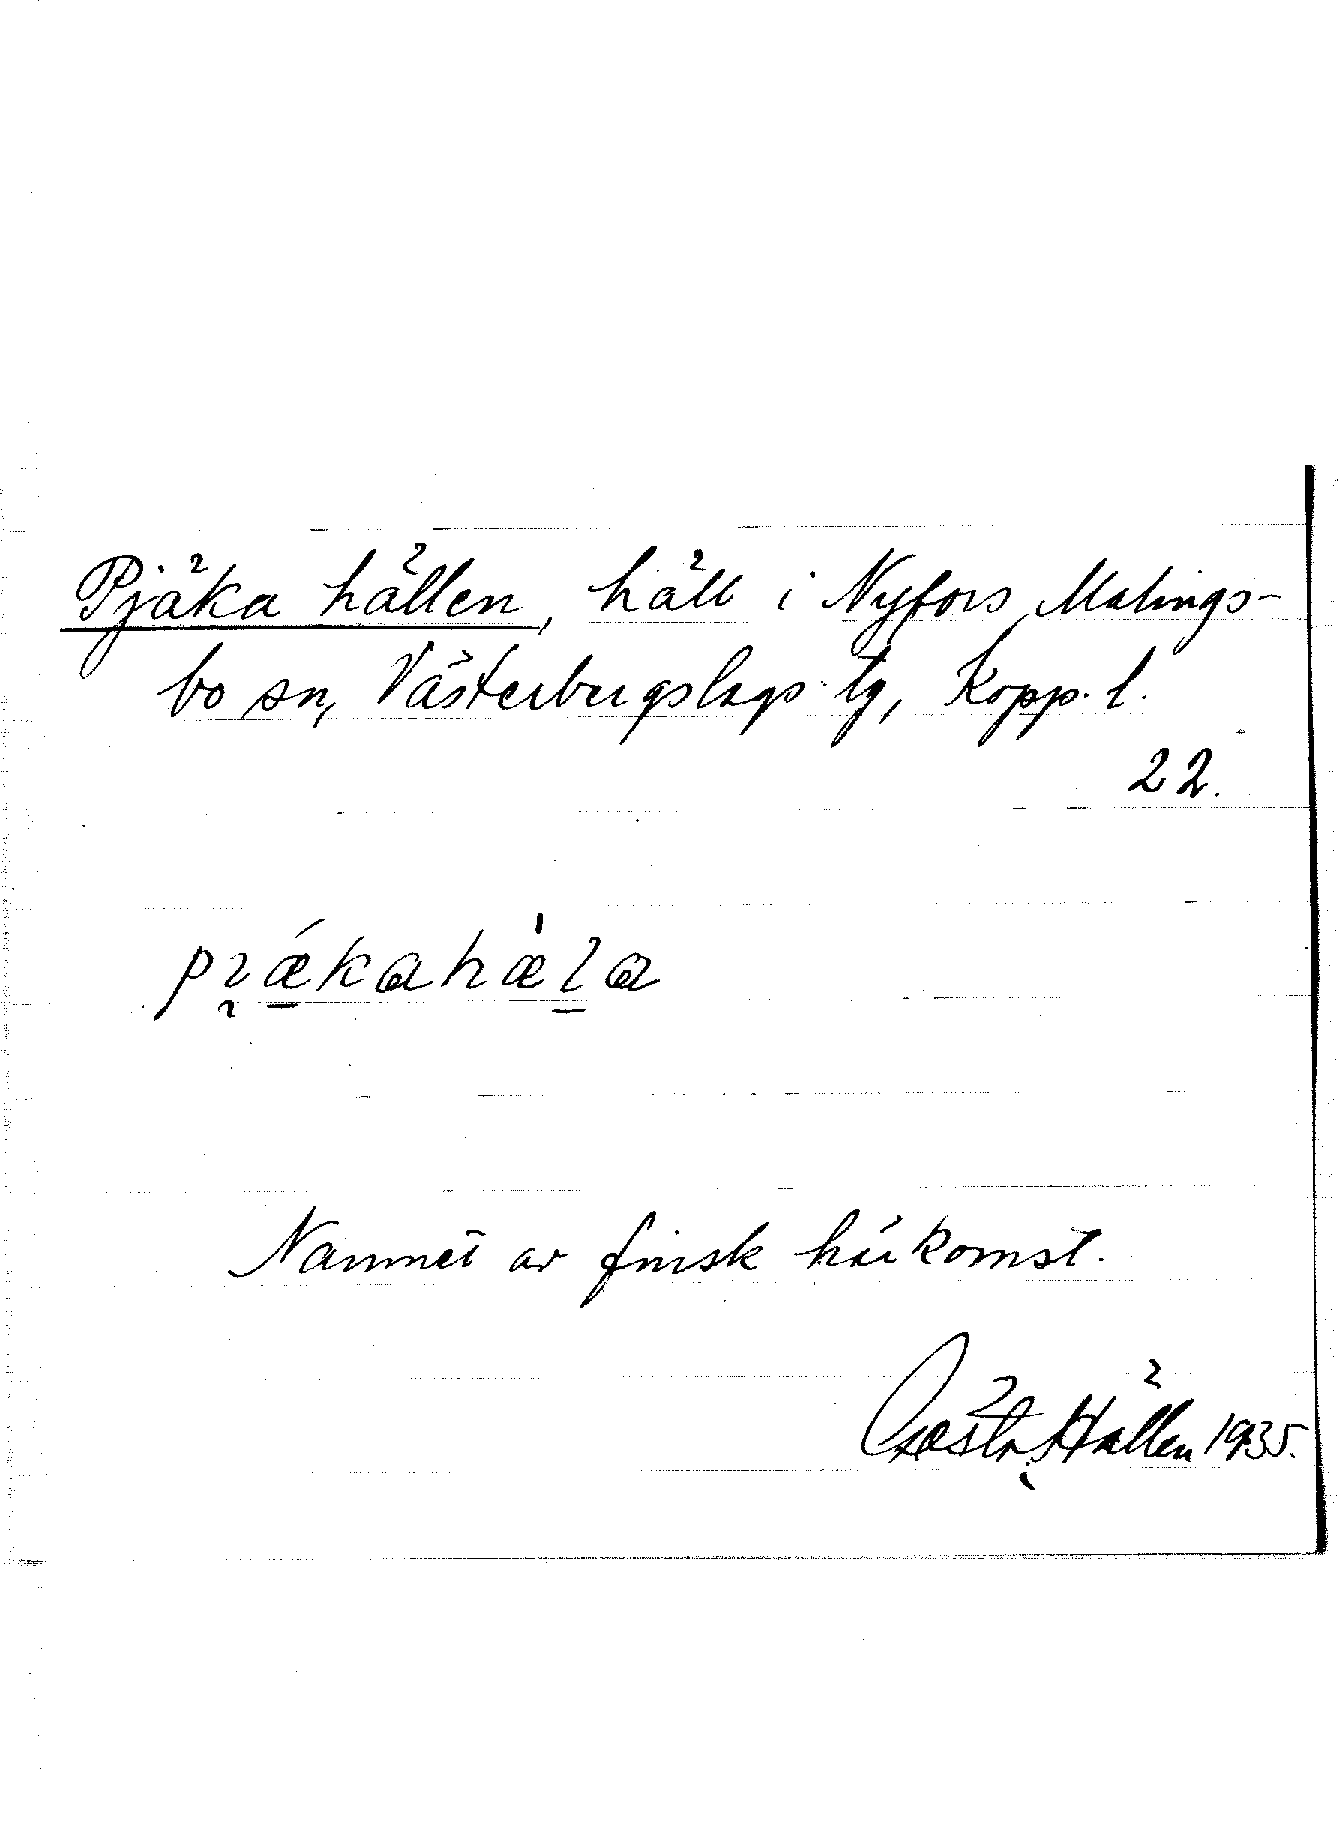 Pjäka hällen, häll i Nyfors Malings-
bo sn, Västerbergslags tg, Kopp. l.
22.
pɪ̯ǽkahæ̀la
Namnet av finsk härkomst.
Gösta Hällen 1935.